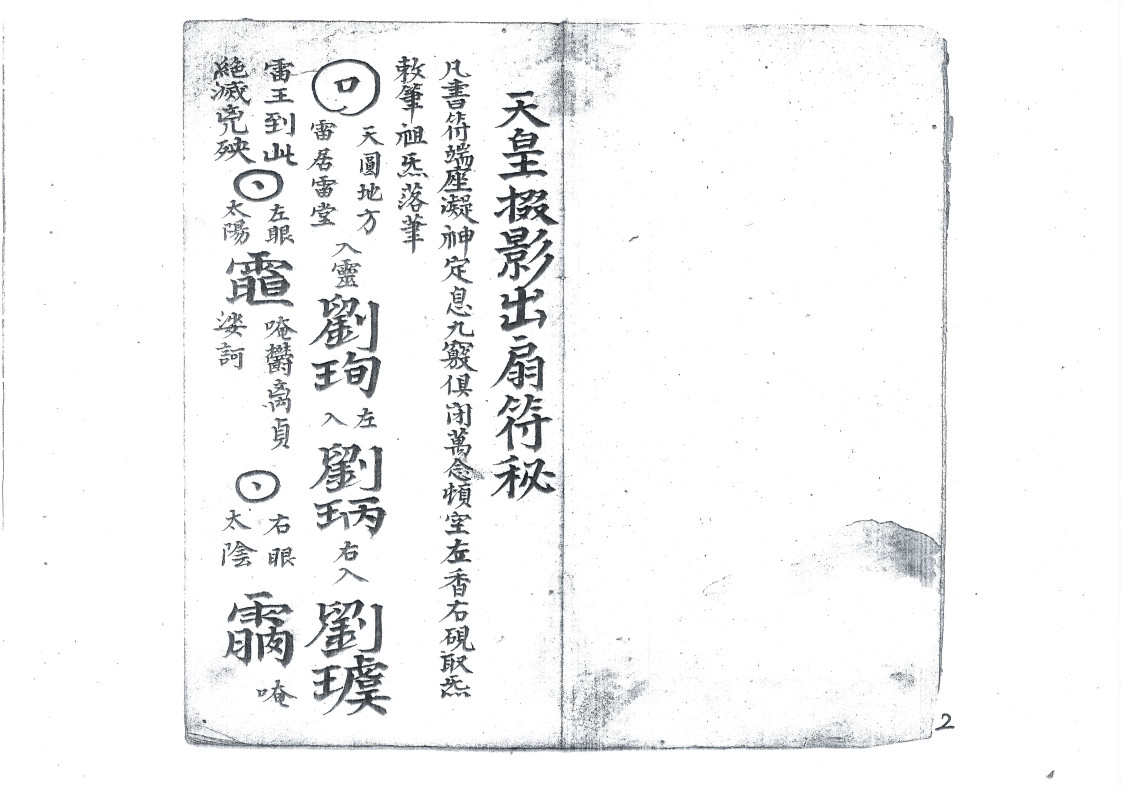 天皇掇影出扇符秘
凡書符端座凝神定息九竅俱閉萬念頓空左香右硯取炁
敕筆祖炁落筆
口
天圓地方
雷居雷堂
入靈
劉珣
左入
劉珦
右入
劉琥
雷王到此
絕滅兇殃
左眼
太陽
唵欝离貞
娑訶
右眼
太陰
唵
2